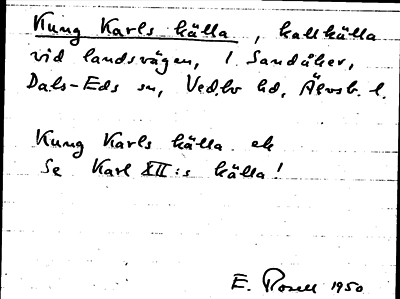 Kung Karls källa, kallkälla
vid landsvägen, i Sandåker,
Dals-Eds sn, Vedbo hd, Älvsb. l.
Kung Karls källa ek
Se Karl XII:s källa!
E. Rosell 1950